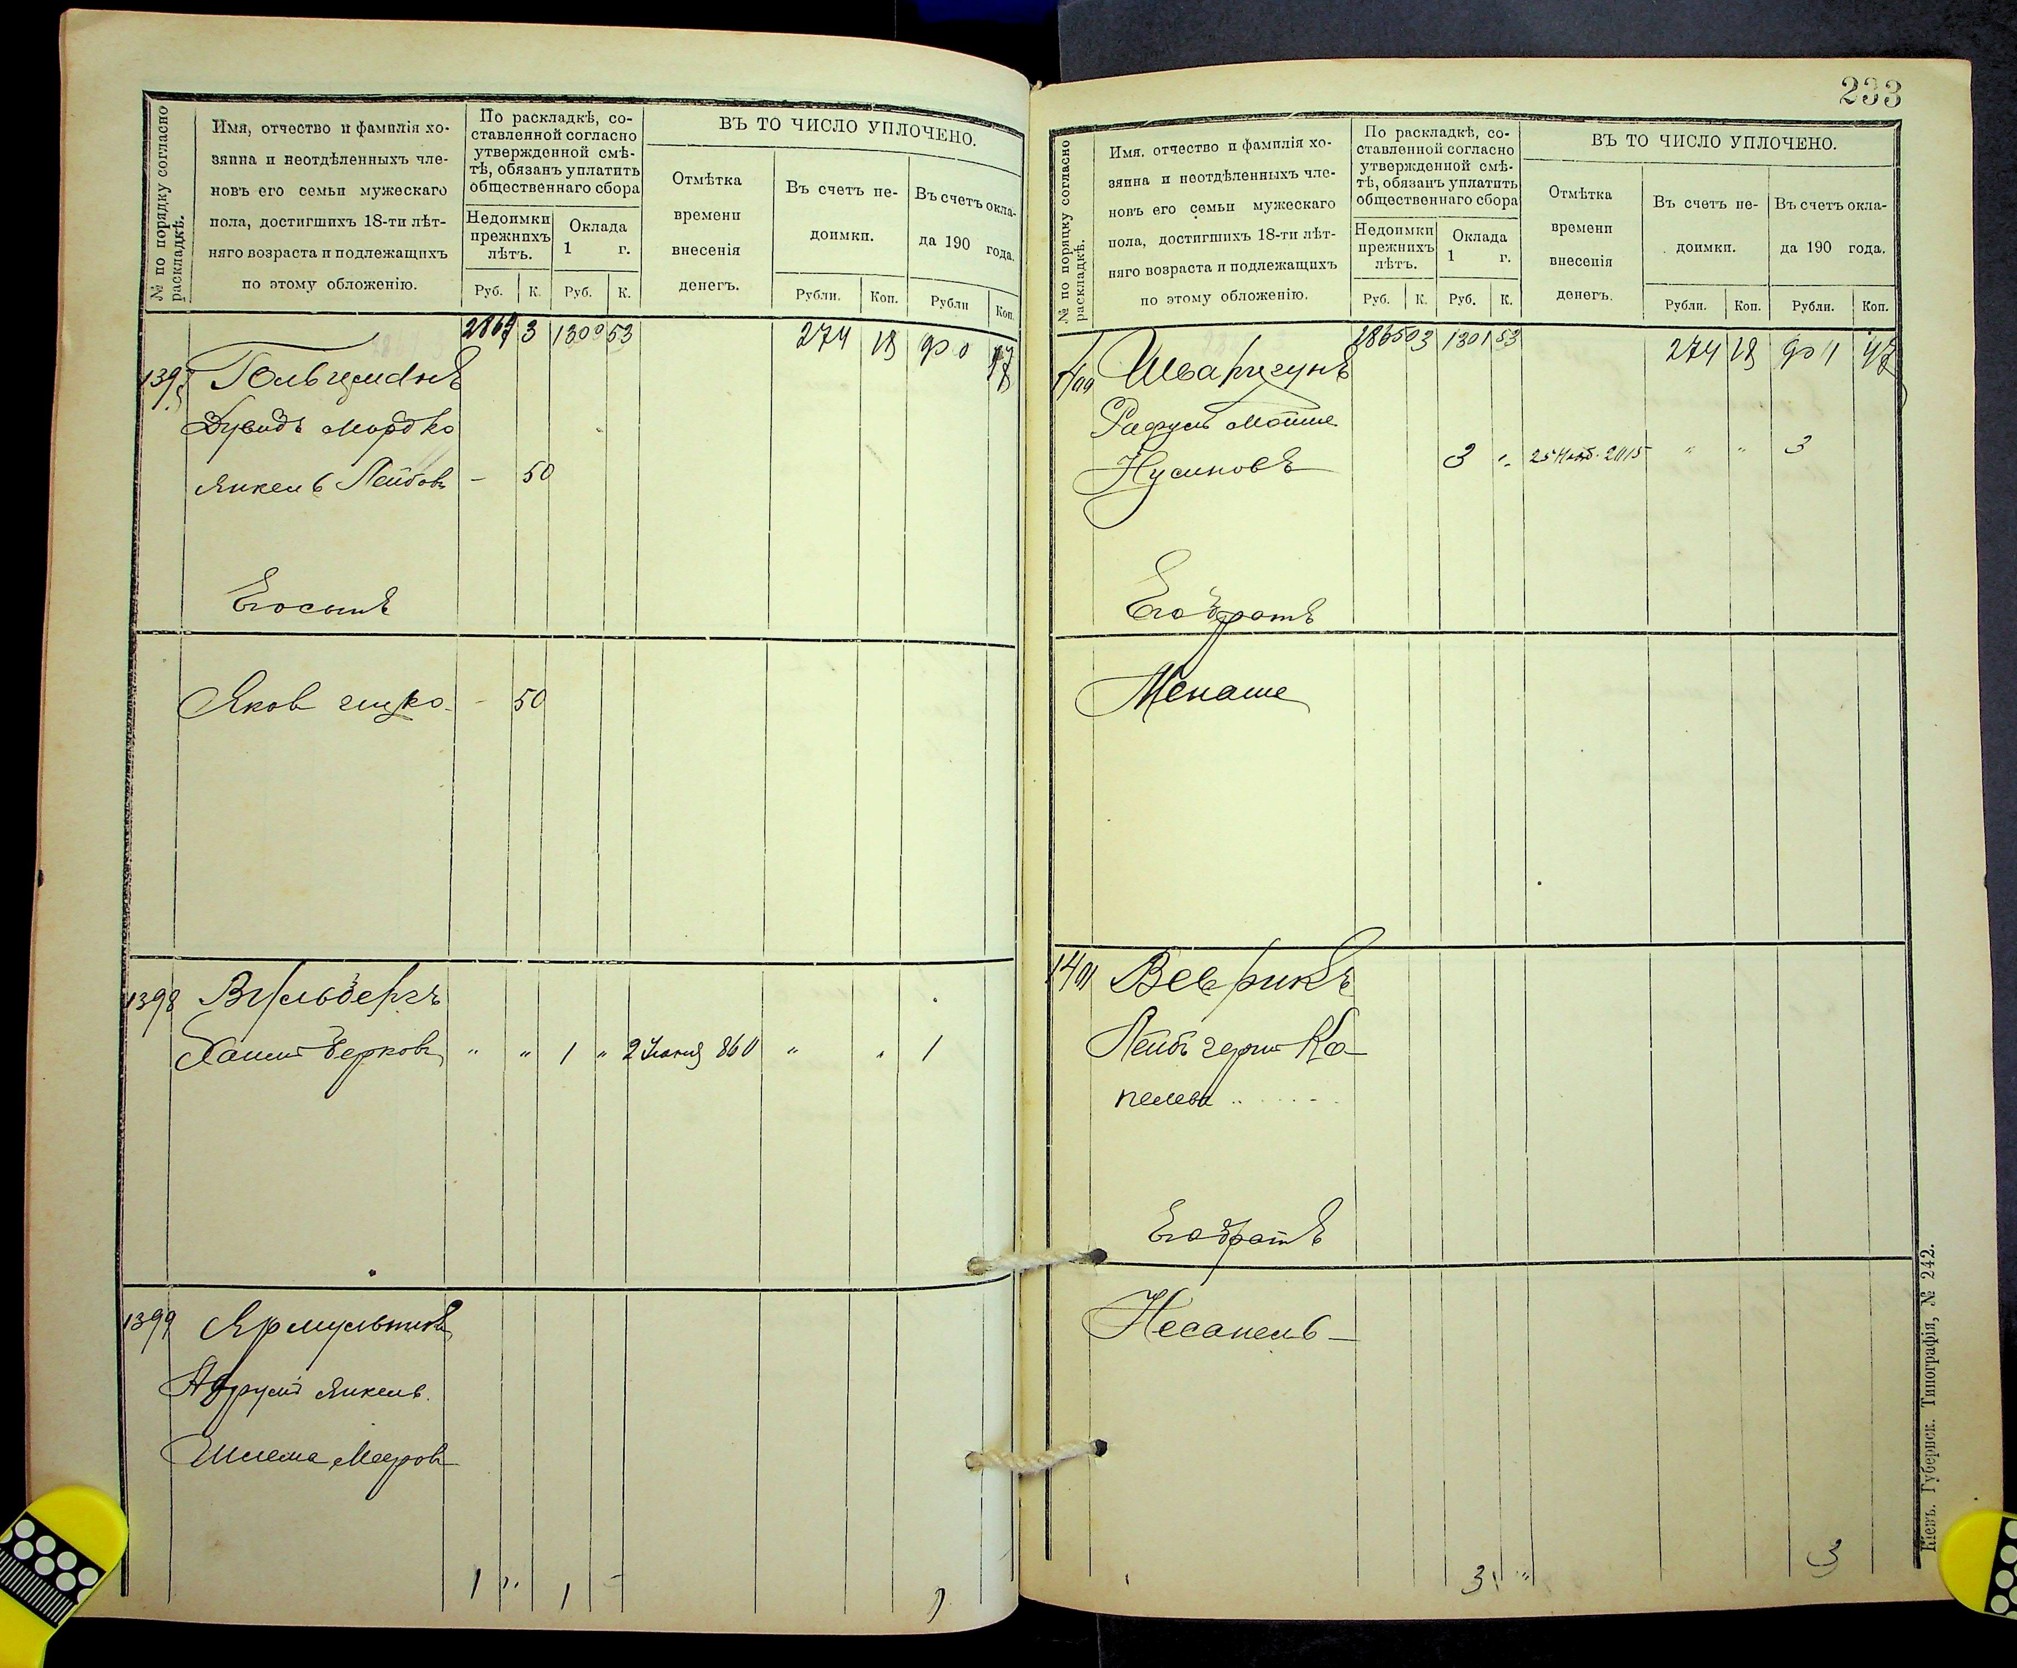 № по порядку согласно раскладкѣ.
Имя, отчество и фамилія хо-
зяина и неотдѣленныхъ чле-
новъ его семьи мужескаго
пола, достигшихъ 18-ти лѣт-
няго возраста и подлежащихъ
по этому обложенію.
По раскладкѣ, со-
ставленной согласно
утвержденной смѣ-
тѣ, обязанъ уплатить
общественнаго сбора
Недоимки
прежнихъ
лѣтъ.
Оклада
1 г.
Руб. К. Руб. К.
ВЪ ТО ЧИСЛО УПЛОЧЕНО.
Отмѣтка
времени
внесенія
денегъ.
Въ счетъ не-
доимки.
Въ счетъ окла-
да 190 года.
Рубли. Коп. Рубли Коп.
3 1300 53 274 18
Дувидъ Мордко
Янкель Лейбовъ - 50
Его сынъ
Яков Ицко - 50
1398
Хаимъ Берковъ " " 1 " 2 Іюня 860 " " 1
1399
Абрумъ Янкель
Шлема Мееров
1 " 1 - 1
233
№ по порядку согласно раскладкѣ.
Имя, отчество и фамилія хо-
зяина и неотдѣленныхъ чле-
новъ его семьи мужескаго
пола, достигшихъ 18-ти лѣт-
няго возраста и подлежащихъ
по этому обложенію.
По раскладкѣ, со-
ставленной согласно
утвержденной смѣ-
тѣ, обязанъ уплатить
общественнаго сбора
Недоимки
прежнихъ
лѣтъ.
Оклада
1 г.
Руб. К. Руб. К.
ВЪ ТО ЧИСЛО УПЛОЧЕНО.
Отмѣтка
времени
внесенія
денегъ.
Въ счетъ не-
доимки.
Въ счетъ окла-
да 190 года.
Рубли. Коп. Рубли. Коп.
2865 03 1301 53 274 18
1400
Рафуль Мойше
Нусиновъ 3 " 2015 " " 3
Его братъ
Менаше
1401 Веврикъ
Лейбъ Герш Ко-
пелевъ
Его братъ
Несанель
3 " 3
Кіевъ. Губернск. Типографія, № 242.